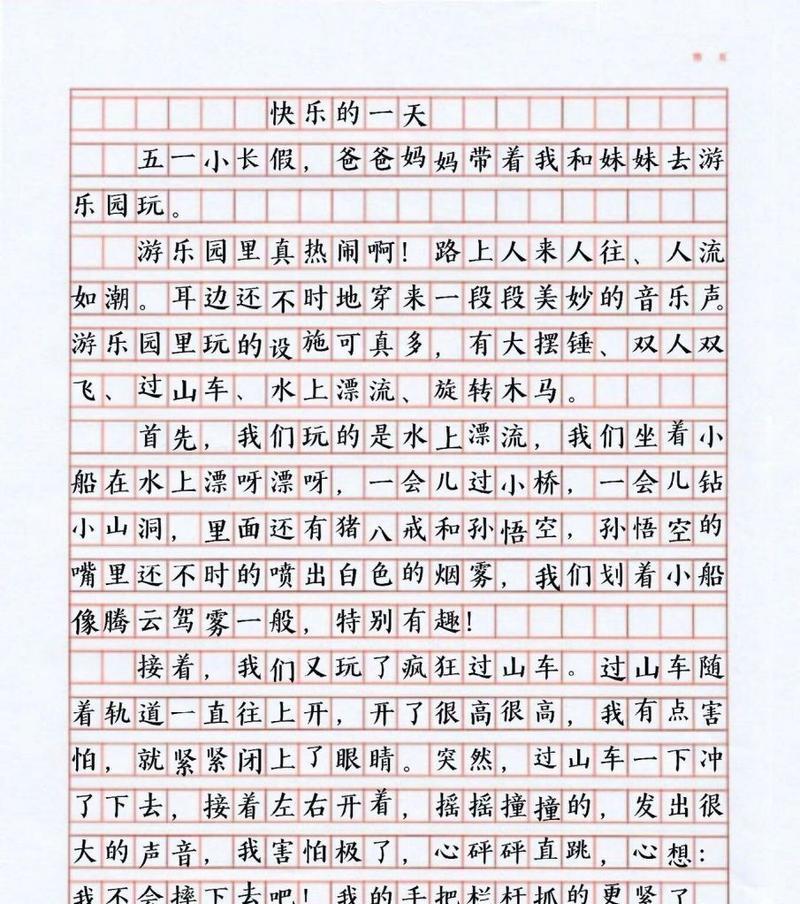 快乐的一天
五一小长假，爸爸妈妈带着我和妹妹去游
乐园玩。
游乐园里真热闹啊！路上人来人往、人流
如潮。耳边还不时地穿来一段段美妙的音乐声。
游乐园里玩的设施可真多，有大摆锤、双人双
飞、过山车、水上漂流、旋转木马。
首先，我们玩的是水上漂流，我们坐着小
船在水上漂呀漂呀，一会儿过小桥，一会儿钻
小山洞，里面还有猪八戒和孙悟空，孙悟空的
嘴里还不时的喷出白色的烟雾，我们划着小船
像腾云驾雾一般，特别有趣！
接着，我们又玩了疯狂过山车。过山车随
着轨道一直往上开，开了很高很高，我有点害
怕，就紧紧闭上了眼睛。突然，过山车一下冲
了下去，接着左右开着，摇摇撞撞的，发出很
大的声音，我害怕极了，心砰砰直跳，心想：
我不会摔下去吧！我的手把栏杆抓的更紧了